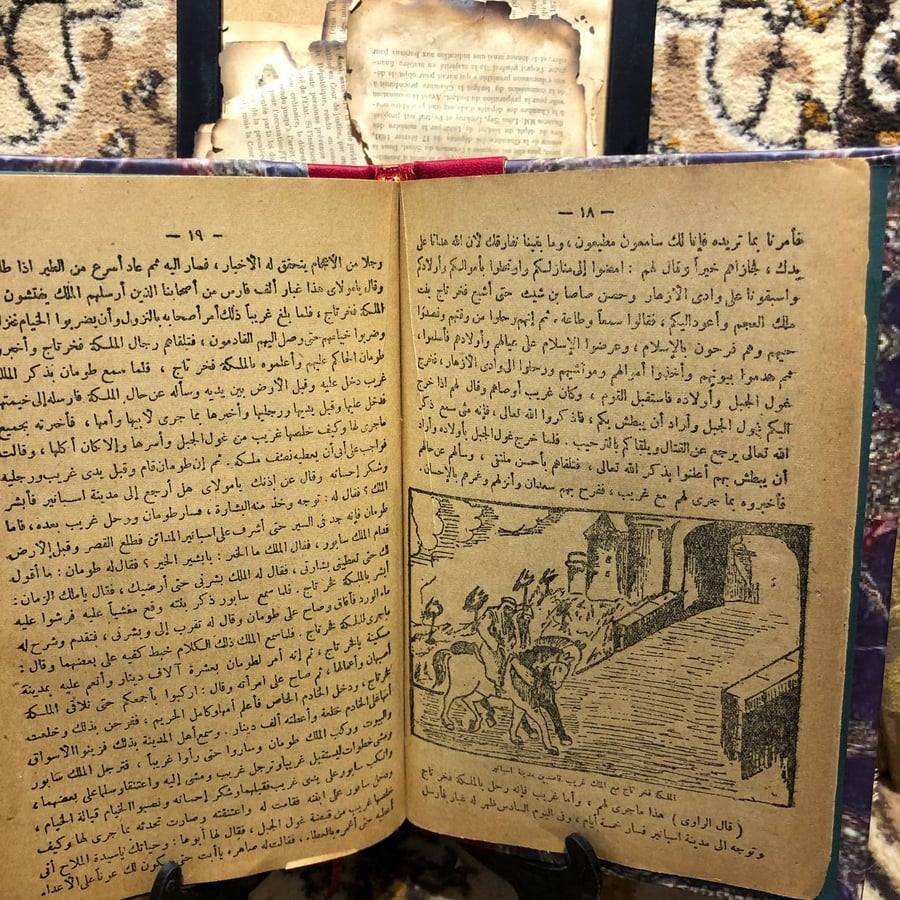 — ١٨ —
فأمرنا بما تريده فإنا لك سامعون مطيعون ، وما بقينا نفارقك لأن الله هدانا على
يدك ، فجازاهم خيراً وقال لهم : امضوا إلى منازلكم وارتحلوا بأموالكم وأولادكم
واسبقونا على وادى الأزهار وحصن صاصا بن شيث حتى أشيع فخر تاج بنت
ملك العجم وأعود اليكم ، فقالوا سمعاً وطاعة ، ثم إنهم رحلوا من وقتهم وقصدوا
حيهم وهم فرحون بالإسلام ، وعرضوا الإسلام على عيالهم وأولادهم فأسلموا ،
ثم هدموا بيوتهم وأخذوا أموالهم ومواشيهم ورحلوا الى وادى الأزهار ، فخرج
غول الجبل وأولاده فاستقبل القوم ، وكان غريب أوصاهم وقال لهم اذا خرج
اليكم غول الجبل وأراد أن يبطش بكم ، فاذكروا الله تعالى ، فإنه متى سمع ذكر
الله تعالى يرجع عن القتال ويلقاكم بالترحيب . فلما خرج غول الجبل وأولاده وأراد
أن يبطش بهم أعلنوا بذكر الله تعالى ، فتلقاهم بأحسن ملتقى ، وسألهم عن حالهم
فأخبروه بما جرى لهم مع غريب ، ففرح بهم سعدان وأنزلهم وغمرهم بالإحسان .
الملكة فخر تاج مع الملك غريب قاصدين مدينة اسبانير
( قال الراوى ) هذا ماجرى لهم ، وأما غريب فإنه رحل بالملكة فخر تاج
وتوجه الى مدينة اسبانير فسار خمسة أيام ، وفى اليوم السادس ظهر له غبار فأرسل
— ١٩ —
رجلا من الاعجام يتحقق له الأخبار ، فسار اليه ثم عاد أسرع من الطير اذا
وقال يامولاى هذا غبار ألف فارس من أصحابنا الذين أرسلهم الملك يفتشون
الملكة فخر تاج ، فلما بلغ غريباً ذلك أمر أصحابه بالنزول وأن يضربوا الخيام
وضربوا خيامهم حتى وصل اليهم القادمون ، فتلقاهم رجال الملكة فخر تاج
طومان الحاكم عليهم وأعلموه بالملكة فخر تاج ، فلما سمع طومان بذكر الملك
غريب دخل عليه وقبل الأرض بين يديه وسأله عن حال الملكة فأرسله إلى خيمتها
فدخل عليها وقبل يديها ورجليها وأخبرها بما جرى لأبيها وأمها ، فأخبرته بجميع
ماجرى لها وكيف خلصها غريب من غول الجبل وأسرها وإلا كان أكلها ، وقالت
فواجب على أبى أن يعطيه نصف ملكه . ثم إن طومان قام وقبل يدى غريب ورجليه
وشكر إحسانه وقال عن إذنك يامولاى هل أرجع إلى مدينة اسبانير فأبشر
الملك ؟ فقال له : توجه وخذ منه البشارة ، فسار طومان ورحل غريب بعده ، فأما
طومان فإنه جد فى السير حتى أشرف على اسبانير المدائن فطلع القصر وقبل الأرض
قدام الملك سابور ، فقال الملك ما الخبر : يابشير الخير ؟ فقال له طومان : ما أقول
لك حتى تعطينى بشارتى ، فقال له الملك بشرنى حتى أرضيك ، فقال ياملك الزمان :
أبشر بالملكة فخر تاج . فلما سمع سابور ذكر بنته وقع مغشياً عليه فرشوا عليه
ماء الورد فأفاق وصاح على طومان وقال له تقرب إلى وبشرنى ، فتقدم وشرح له
ماجرى للملكة فخر تاج . فلما سمع الملك ذلك الكلام خبط كفيه على بعضهما وقال :
سكينة يافخر تاج ، ثم إنه أمر لطومان بعشرة آلاف دينار وأنعم عليه بمدينة
أصبهان وأعمالها ، ثم صاح على امرأته وقال : اركبوا بأجمعكم حتى نلاقى الملكة
فخر تاج ، ودخل الخادم الخاص فأعلم أمها وكامل الحريم ، ففرحن بذلك وخلعت
أمها على الخادم خلعة وأعطته ألف دينار . وسمع أهل المدينة بذلك فزينوا الأسواق
والبيوت وركب الملك طومان وساروا حتى رأوا غريباً ، فترجل الملك سابور
ومشى خطوات ليستقبل غريباً وترجل غريب ومشى إليه واعتنقا وسلما على بعضهما ،
وانكب سابور على يدى غريب فقبلهما وشكر إحسانه ونصبوا الخيام قبالة الخيام ،
ودخل سابور على ابنته فقامت له واعتنقته وصارت تحدثه بما جرى لها وكيف
خلصها غريب من قبضة غول الجبل ، فقال لها أبوها : وحياتك ياسيدة الملاح أنى
أعطيه حتى أغمره بالعطاء ، فقالت له صاهره ياأبت حتى يكون لك عوناً على الأعداء